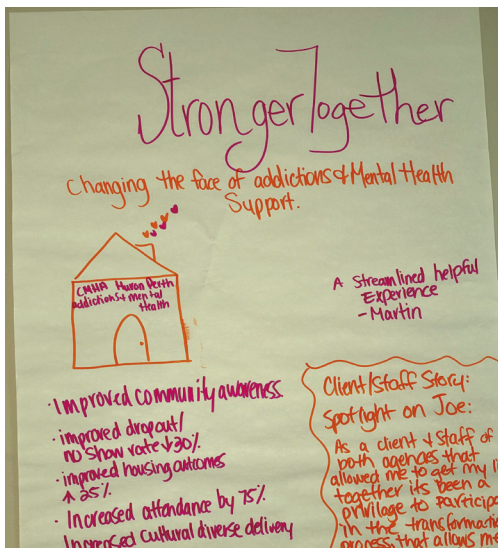 Stronger Together
Changing the face of addictions & Mental Health
Support.
CMHA Huron Perth
addictions & mental
Health
A Streamlined helpful
Experience
- Martin
· Improved community awareness.
· improved dropout/
no show rate ↓ 30%
· improved housing outcomes
↑ 25%
· Increased attendance by 75%
Increased Cultural diverse delivery
Client/Staff Story:
Spotlight on Joe:
As a client & staff of
both agencies that
allowed me to get my li
together its been a
privilage to participa
in the transformatio
process that allows me